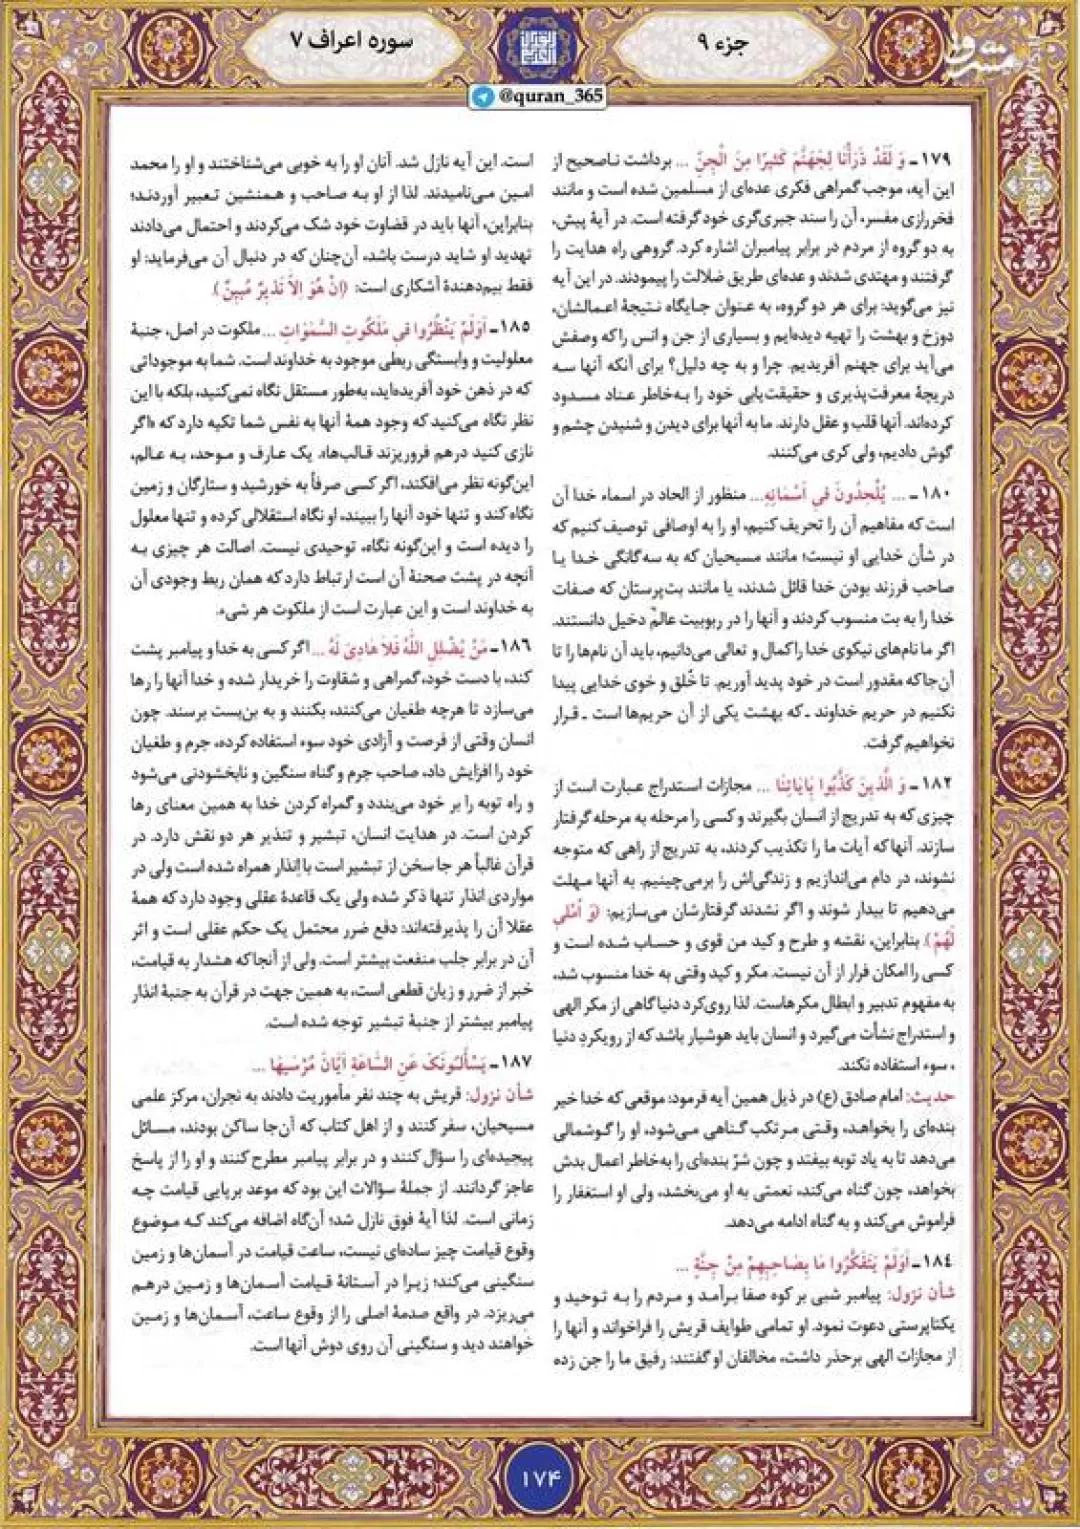 جزء ۹
سوره اعراف ۷
@quran_365
مشرق
۱۷۹ـ وَ لَقَدْ ذَرَأْنَا لِجَهَنَّمَ كَثِيرًا مِنَ الْجِنِّ ... برداشت ناصحیح از
این آیه، موجب گمراهی فکری عده‌ای از مسلمین شده است و مانند
فخررازی مفسر، آن را سند جبری‌گری خود گرفته است. در آیهٔ پیش،
به دو گروه از مردم در برابر پیامبران اشاره کرد. گروهی راه هدایت را
گرفتند و مهتدی شدند و عده‌ای طریق ضلالت را پیمودند. در این آیه
نیز می‌گوید: برای هر دو گروه، به عنوان جایگاه نتیجهٔ اعمالشان،
دوزخ و بهشت را تهیه دیده‌ایم و بسیاری از جن و انس را که وصفش
می‌آید برای جهنم آفریدیم. چرا و به چه دلیل؟ برای آنکه آنها سه
دریچهٔ معرفت‌پذیری و حقیقت‌یابی خود را به‌خاطر عناد مسدود
کرده‌اند. آنها قلب و عقل دارند. ما به آنها برای دیدن و شنیدن چشم و
گوش دادیم، ولی کری می‌کنند.
۱۸۰ـ ... يُلْحِدُونَ فِي أَسْمَائِهِ... منظور از الحاد در اسماء خدا آن
است که مفاهیم آن را تحریف کنیم، او را به اوصافی توصیف کنیم که
در شأن خدایی او نیست؛ مانند مسیحیان که به سه‌گانگی خدا یا
صاحب فرزند بودن خدا قائل شدند، یا مانند بت‌پرستان که صفات
خدا را به بت منسوب کردند و آنها را در ربوبیت عالم دخیل دانستند.
اگر ما نام‌های نیکوی خدا را کمال و تعالی می‌دانیم، باید آن نام‌ها را تا
آن‌جا که مقدور است در خود پدید آوریم. تا خُلق و خوی خدایی پیدا
نکنیم در حریم خداوند ـ که بهشت یکی از آن حریم‌ها است ـ قرار
نخواهیم گرفت.
۱۸۲ـ وَ الَّذِينَ كَذَّبُوا بِآيَاتِنَا ... مجازات استدراج عبارت است از
چیزی که به تدریج از انسان بگیرند و کسی را مرحله به مرحله گرفتار
سازند. آنها که آیات ما را تکذیب کردند، به تدریج از راهی که متوجه
نشوند، در دام می‌اندازیم و زندگی‌اش را برمی‌چینیم. به آنها مهلت
می‌دهیم تا بیدار شوند و اگر نشدند گرفتارشان می‌سازیم: (وَ أُمْلِي
لَهُمْ). بنابراین، نقشه و طرح و کید من قوی و حساب شده است و
کسی را امکان فرار از آن نیست. مکر و کید وقتی به خدا منسوب شد،
به مفهوم تدبیر و ابطال مکرهاست. لذا روی‌کرد دنیا گاهی از مکر الهی
و استدراج نشأت می‌گیرد و انسان باید هوشیار باشد که از رویکرد دنیا
، سوء استفاده نکند.
حدیث: امام صادق (ع) در ذیل همین آیه فرمود: موقعی که خدا خیر
بنده‌ای را بخواهد، وقتی مرتکب گناهی می‌شود، او را گوشمالی
می‌دهد تا به یاد توبه بیفتد و چون شرّ بنده‌ای را به‌خاطر اعمال بدش
بخواهد، چون گناه می‌کند، نعمتی به او می‌بخشد، ولی او استغفار را
فراموش می‌کند و به گناه ادامه می‌دهد.
۱۸۴ـ أَوَلَمْ يَتَفَكَّرُوا مَا بِصَاحِبِهِمْ مِنْ جِنَّةٍ ...
شأن نزول: پیامبر شبی بر کوه صفا برآمد و مردم را به توحید و
یکتاپرستی دعوت نمود. او تمامی طوایف قریش را فراخواند و آنها را
از مجازات الهی برحذر داشت، مخالفان او گفتند: رفیق ما را جن زده
است. این آیه نازل شد. آنان او را به خوبی می‌شناختند و او را محمد
امین می‌نامیدند. لذا از او به صاحب و همنشین تعبیر آوردند؛
بنابراین، آنها باید در قضاوت خود شک می‌کردند و احتمال می‌دادند
تهدید او شاید درست باشد، آن‌چنان که در دنبال آن می‌فرماید: او
فقط بیم‌دهندهٔ آشکاری است: (إِنْ هُوَ إِلاَّ نَذِيرٌ مُبِينٌ).
۱۸۵ـ أَوَلَمْ يَنْظُرُوا فِي مَلَكُوتِ السَّمَوَاتِ ... ملکوت در اصل، جنبهٔ
معلولیت و وابستگی ربطی موجود به خداوند است. شما به موجوداتی
که در ذهن خود آفریده‌اید، به‌طور مستقل نگاه نمی‌کنید، بلکه با این
نظر نگاه می‌کنید که وجود همهٔ آنها به نفس شما تکیه دارد که «اگر
نازی کنید درهم فروریزند قالب‌ها». یک عارف و موحد، به عالم،
این‌گونه نظر می‌افکند، اگر کسی صرفاً به خورشید و ستارگان و زمین
نگاه کند و تنها خود آنها را ببیند، او نگاه استقلالی کرده و تنها معلول
را دیده است و این‌گونه نگاه، توحیدی نیست. اصالت هر چیزی به
آنچه در پشت صحنهٔ آن است ارتباط دارد که همان ربط وجودی آن
به خداوند است و این عبارت است از ملکوت هر شیء.
۱۸۶ـ مَنْ يُضْلِلِ اللَّهُ فَلاَ هَادِيَ لَهُ ... اگر کسی به خدا و پیامبر پشت
کند، با دست خود، گمراهی و شقاوت را خریدار شده و خدا آنها را رها
می‌سازد تا هرچه طغیان می‌کنند، بکنند و به بن‌بست برسند. چون
انسان وقتی از فرصت و آزادی خود سوء استفاده کرده، جرم و طغیان
خود را افزایش داد، صاحب جرم و گناه سنگین و نابخشودنی می‌شود
و راه توبه را بر خود می‌بندد و گمراه کردن خدا به همین معنای رها
کردن است. در هدایت انسان، تبشیر و تنذیر هر دو نقش دارد. در
قرآن غالباً هر جا سخن از تبشیر است با انذار همراه شده است ولی در
مواردی انذار تنها ذکر شده ولی یک قاعدهٔ عقلی وجود دارد که همهٔ
عقلا آن را پذیرفته‌اند: دفع ضرر محتمل یک حکم عقلی است و اثر
آن در برابر جلب منفعت بیشتر است. ولی از آنجا که هشدار به قیامت،
خبر از ضرر و زیان قطعی است، به همین جهت در قرآن به جنبهٔ انذار
پیامبر بیشتر از جنبهٔ تبشیر توجه شده است.
۱۸۷ـ يَسْأَلُونَكَ عَنِ السَّاعَةِ أَيَّانَ مُرْسَيهَا ...
شأن نزول: قریش به چند نفر مأموریت دادند به نجران، مرکز علمی
مسیحیان، سفر کنند و از اهل کتاب که آن‌جا ساکن بودند، مسائل
پیچیده‌ای را سؤال کنند و در برابر پیامبر مطرح کنند و او را از پاسخ
عاجز گردانند. از جملهٔ سؤالات این بود که موعد برپایی قیامت چه
زمانی است. لذا آیهٔ فوق نازل شد؛ آن‌گاه اضافه می‌کند که موضوع
وقوع قیامت چیز ساده‌ای نیست، ساعت قیامت در آسمان‌ها و زمین
سنگینی می‌کند؛ زیرا در آستانهٔ قیامت آسمان‌ها و زمین درهم
می‌ریزد. در واقع صدمهٔ اصلی را از وقوع ساعت، آسمان‌ها و زمین
خواهند دید و سنگینی آن روی دوش آنها است.
۱۷۴